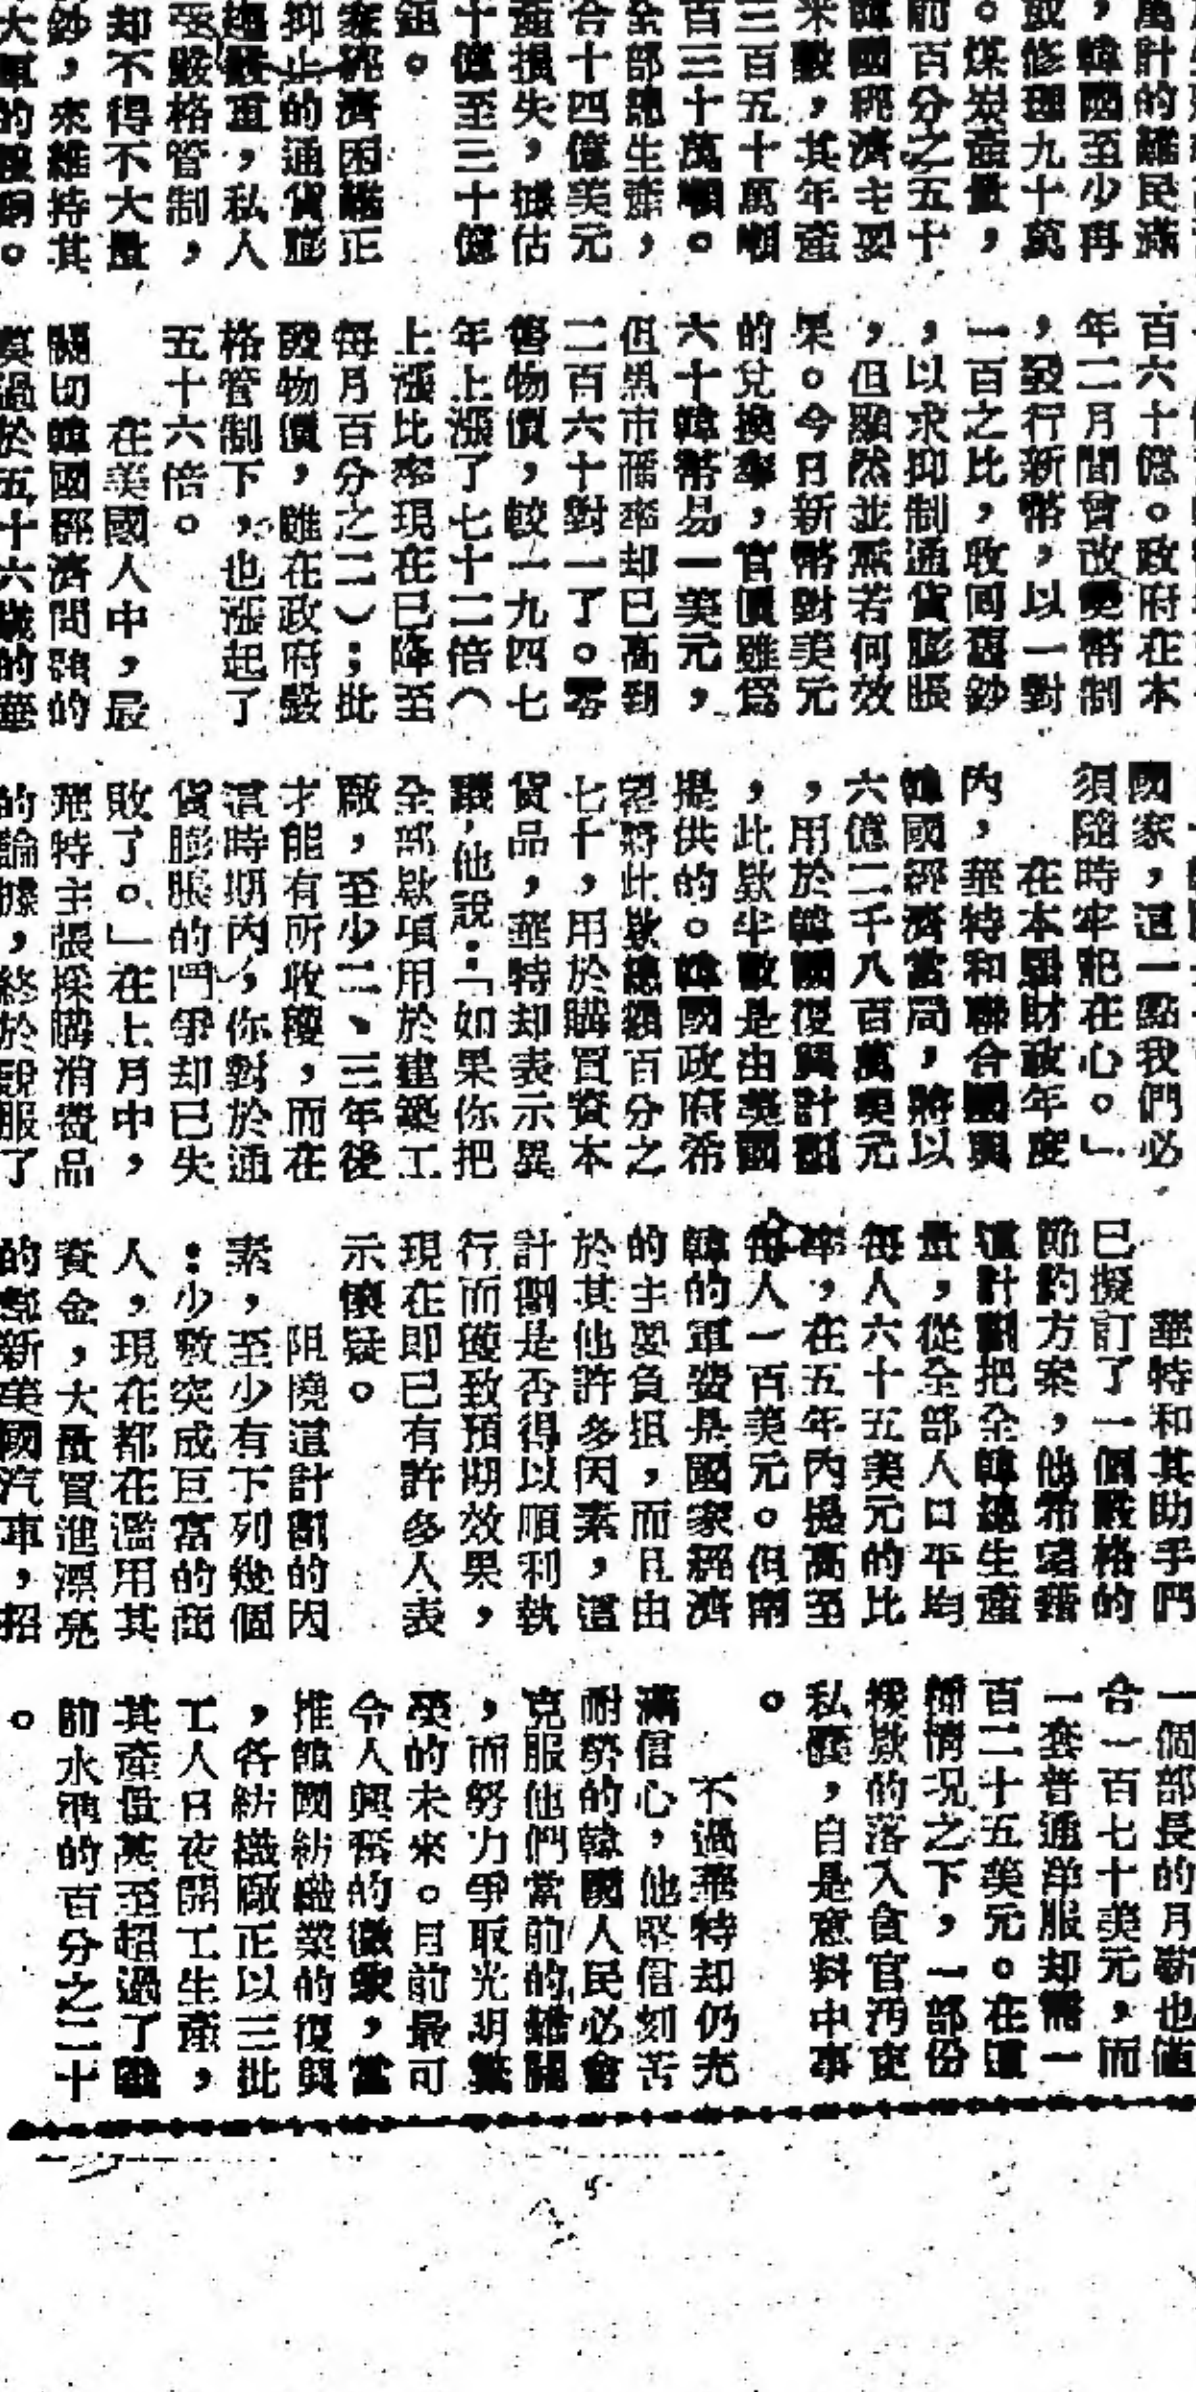 萬計的難民滿
，韓國至少再
或修理九十萬
。煤炭產量，
前百分之五十
韓國經濟主要
米穀，其年產
三百五十萬噸
百三十萬噸。
全部總生產，
合十四億美元
產損失，據估
十億至三十億
。
家經濟困難正
抑止的通貨膨
趨嚴重，私人
受嚴格管制，
却不得不大量
鈔，來維持其
大軍的。
百六十億。政府在本
年二月間曾改變幣制
，發行新幣，以一對
一百之比，收回舊鈔
，以求抑制通貨膨脹
，但顯然並無若何效
果。今日新幣對美元
的兌換率，官價雖爲
六十韓幣易一美元，
但黑市匯率却已高到
二百六十對一了。零
售物價，較一九四七
年上漲了七十二倍（
上漲比率現在已降至
每月百分之二）；批
發物價，雖在政府嚴
格管制下，也漲起了
五十六倍。
在美國人中，最
關切韓國經濟問題的
莫過於五十六歲的華
國家，這一點我們必
須隨時牢記在心。」
在本屆財政年度
內，華特和聯合國與
韓國經濟當局，將以
六億二千八百萬美元
，用於韓國復興計劃
，此欵半數是由美國
提供的。韓國政府希
望將此欵總額百分之
七十，用於購買資本
貨品，華特却表示異
議，他說：「如果你把
全部欵項用於建築工
廠，至少二、三年後
才能有所收穫，而在
這時期內，你對於通
貨膨脹的鬥爭却已失
敗了。」在上月中，
特主張採購消費品
的論據，終於說服了
華特和其助手們
已擬訂了一個嚴格的
節約方案，他希望藉
這計劃把全韓總生產
量，從全部人口平均
每人六十五美元的比
率，在五年內提高至
每人一百美元。但南
韓的軍費是國家經濟
的主要負担，而且由
於其他許多因素，這
計劃是否得以順利執
行而獲致預期效果，
現在即已有許多人表
示懷疑。
阻撓這計劃的因
素，至少有下列幾個
：少數突成巨富的商
人，現在都在濫用其
資金，大量買進漂亮
的新美國汽車，招
一個部長的月薪也值
合一百七十美元，而
一套普通洋服却需一
百二十五美元。在這
種情况之下，一部份
援欵的落入貪官汚吏
私囊，自是意料中事
。
不過華特却仍充
滿信心，他堅信刻苦
耐勞的韓國人民必會
克服他們當前的難關
，而努力爭取光明繁
榮的未來。目前最可
令人興奮的徵象，當
推韓國紡織業的復興
，各紡織廠正以三批
工人日夜開工生產，
其產量甚至超過了戰
前水準的百分之二十
。